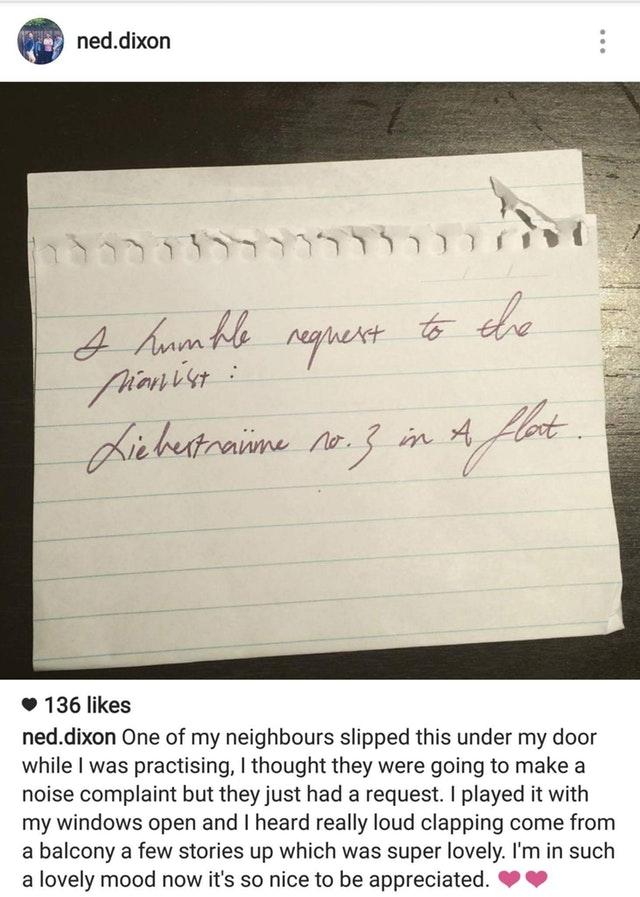 ned.dixon
A humble request to the
pianist :
Liebestraüme no. 3 in A flat.
136 likes
ned.dixon One of my neighbours slipped this under my door
while I was practising, I thought they were going to make a
noise complaint but they just had a request. I played it with
my windows open and I heard really loud clapping come from
a balcony a few stories up which was super lovely. I'm in such
a lovely mood now it's so nice to be appreciated.